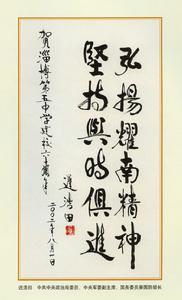 弘揚耀南精神
堅持與時俱進
賀淄博第五中學建校六十周年
遲浩田
二〇〇二年八月一日
迟浩田 中共中央政治局委员、中央军委副主席、国务委员兼国防部长